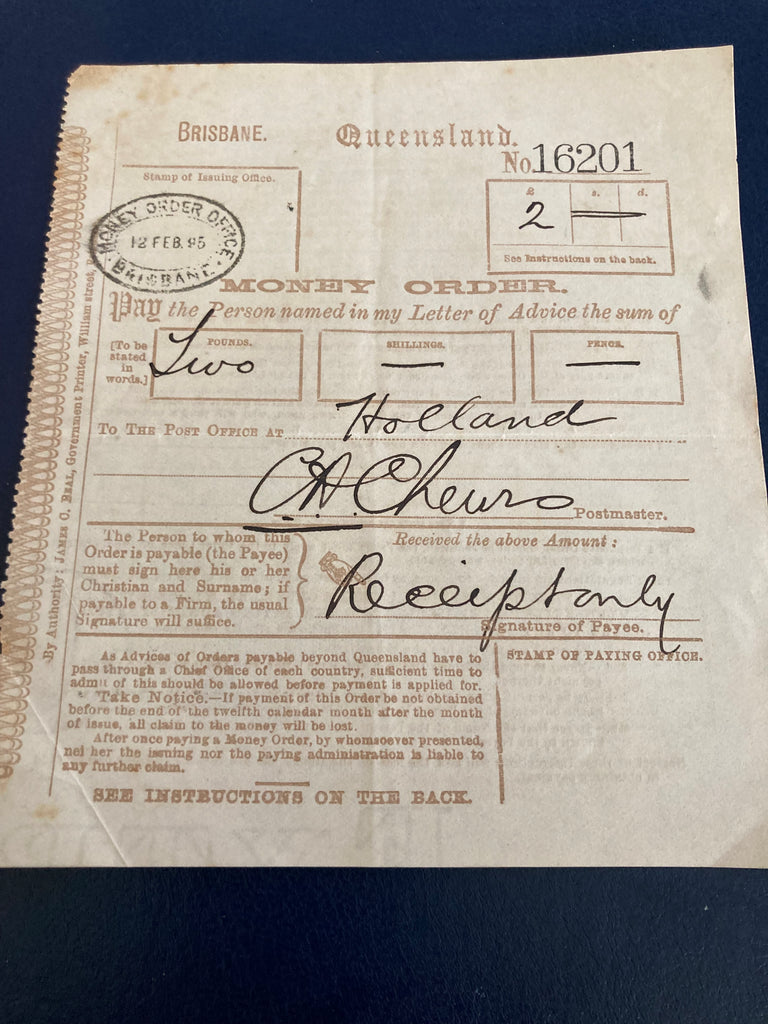 BRISBANE.
Queensland.
No. 16201
Stamp of Issuing Office.
£ s. d.
2 —
See Instructions on the back.
MONEY ORDER OFFICE
12 FEB. 95
BRISBANE
MONEY ORDER.
Pay the Person named in my Letter of Advice the sum of
[To be stated in words.]
POUNDS. SHILLINGS. PENCE.
Two — —
TO THE POST OFFICE AT Holland
C.A. Postmaster.
The Person to whom this
Order is payable (the Payee)
must sign here his or her
Christian and Surname; if
payable to a Firm, the usual
Signature will suffice.
Received the above Amount:
Receipt only
Signature of Payee.
As Advices of Orders payable beyond Queensland have to
pass through a Chief Office of each country, sufficient time to
admit of this should be allowed before payment is applied for.
Take Notice.—If payment of this Order be not obtained
before the end of the twelfth calendar month after the month
of issue, all claim to the money will be lost.
After once paying a Money Order, by whomsoever presented,
nei her the issuing nor the paying administration is liable to
any further claim.
STAMP OF PAYING OFFICE.
SEE INSTRUCTIONS ON THE BACK.
By Authority: JAMES C. BEAL, Government Printer, William street,